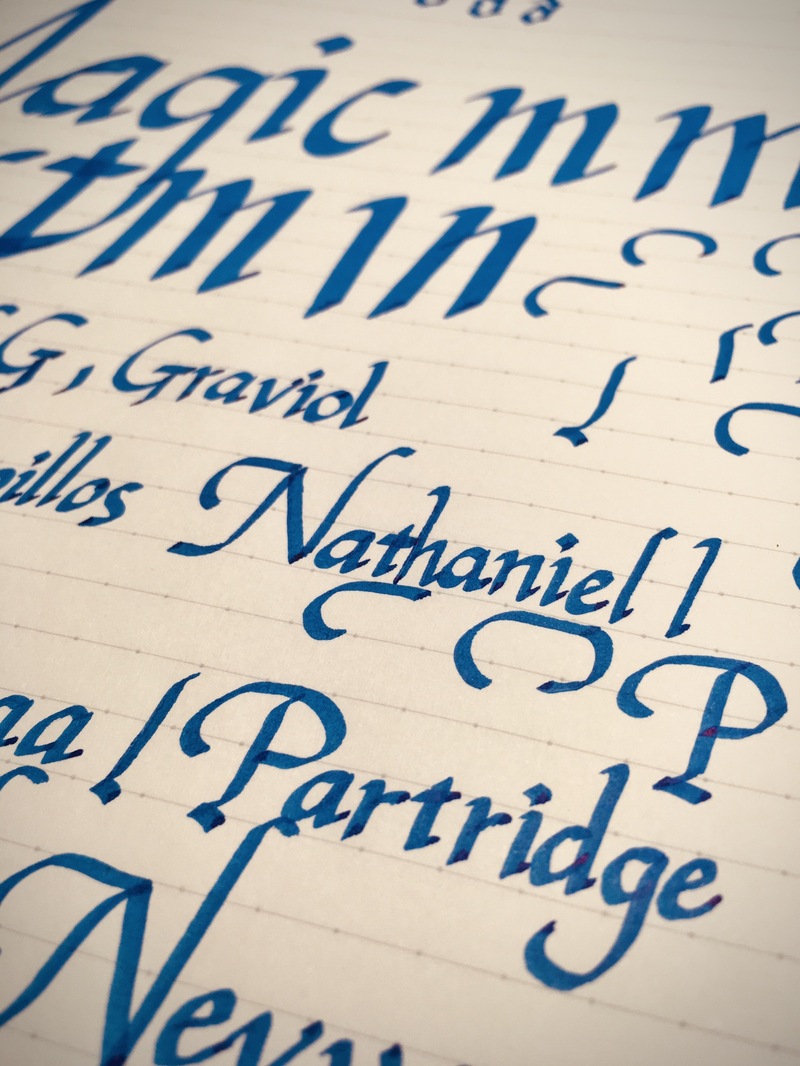 agic m m
tm in
G, Graviol
illos Nathaniel l
P
aa l Partridge
Nev